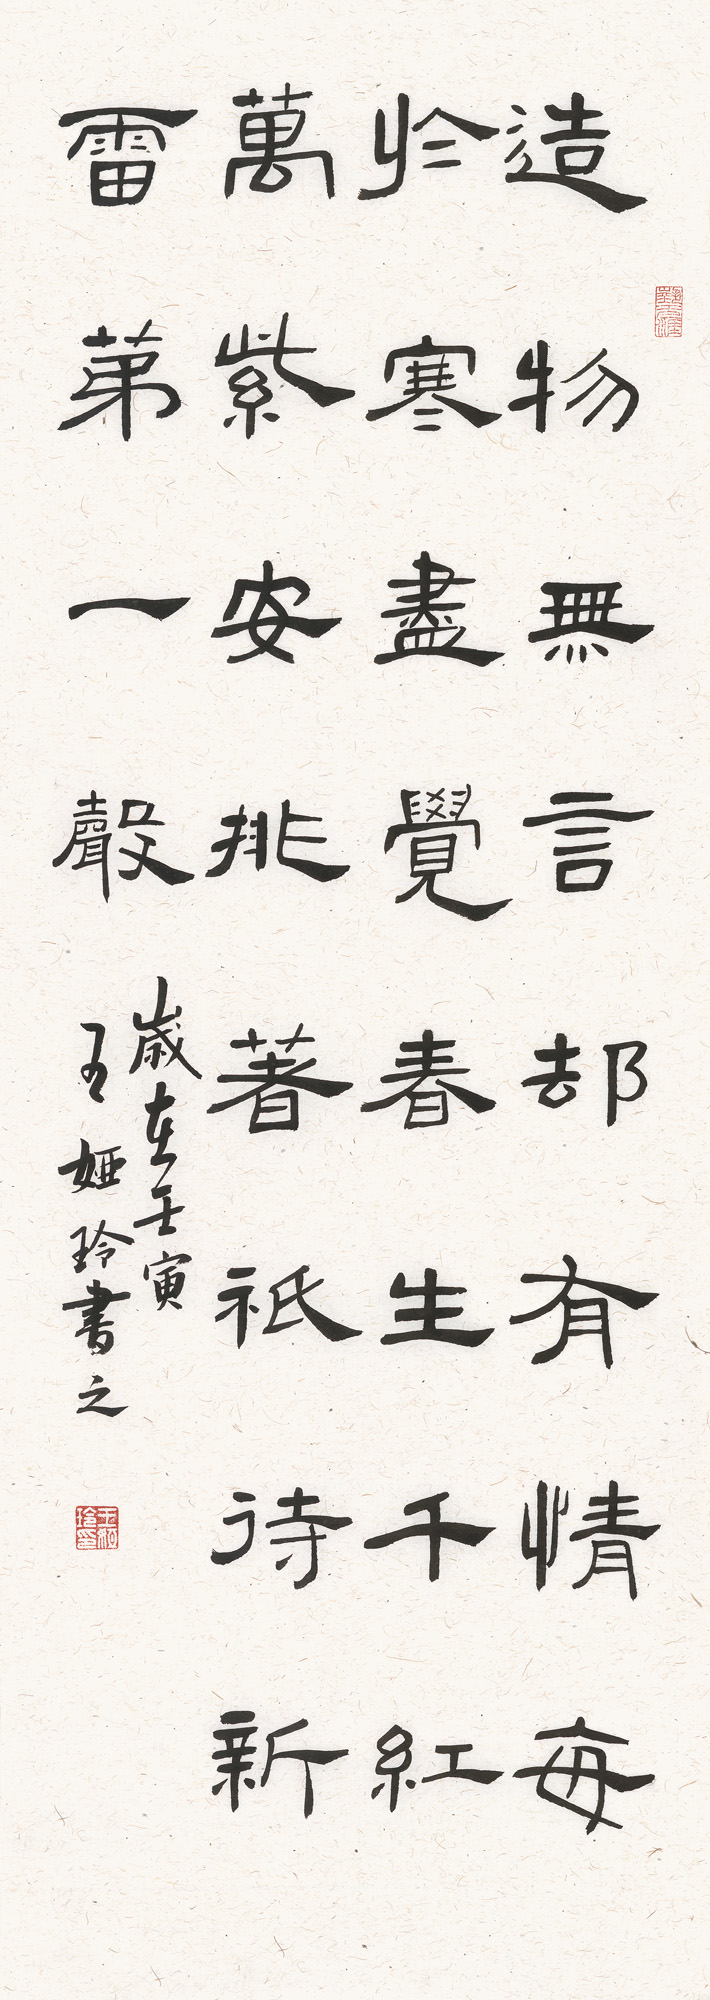 造物無言却有情每
於寒盡覺春生千紅
萬紫安排著祇待新
雷第一聲
歲在壬寅
王婭玲書之
王婭玲印